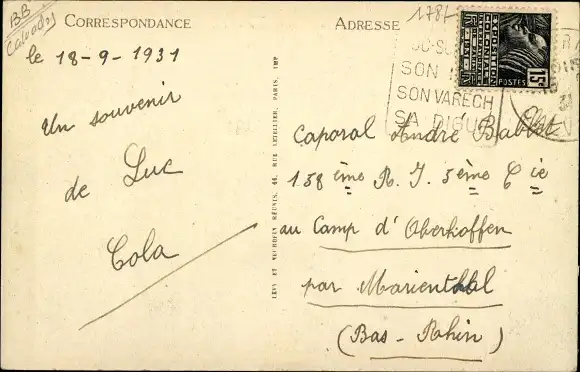 BB
Calvados
CORRESPONDANCE
le 18-9-1931
Un souvenir
de Luc
Cola
LEVY ET NEURDEIN RÉUNIS, 44, RUE LETELLIER, PARIS, IMP
ADRESSE
EXPOSITION
COLONIALE
INTERNATIONALE
PARIS 1931
POSTES
15c
SON
SON VARECH
SA DIGUE
Caporal André Babbet
158 ème R. I. 5 ème Cie
au Camp d'Oberhoffen
par Marienthal
(Bas-Rhin)